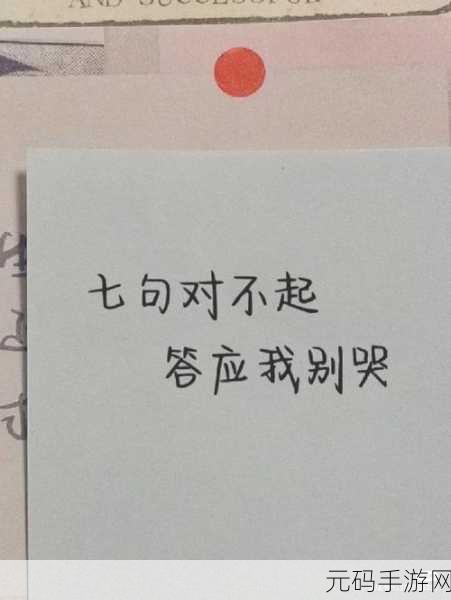 AND SUCCESSFUL
七句对不起
答应我别哭
元码手游网